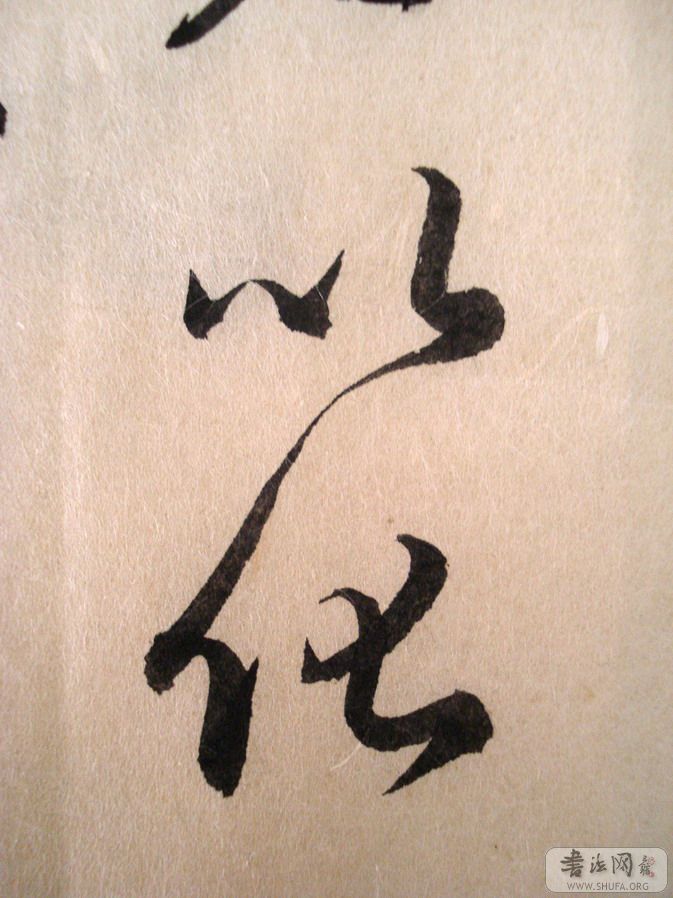 以
化
書法网
WWW.SHUFA.ORG